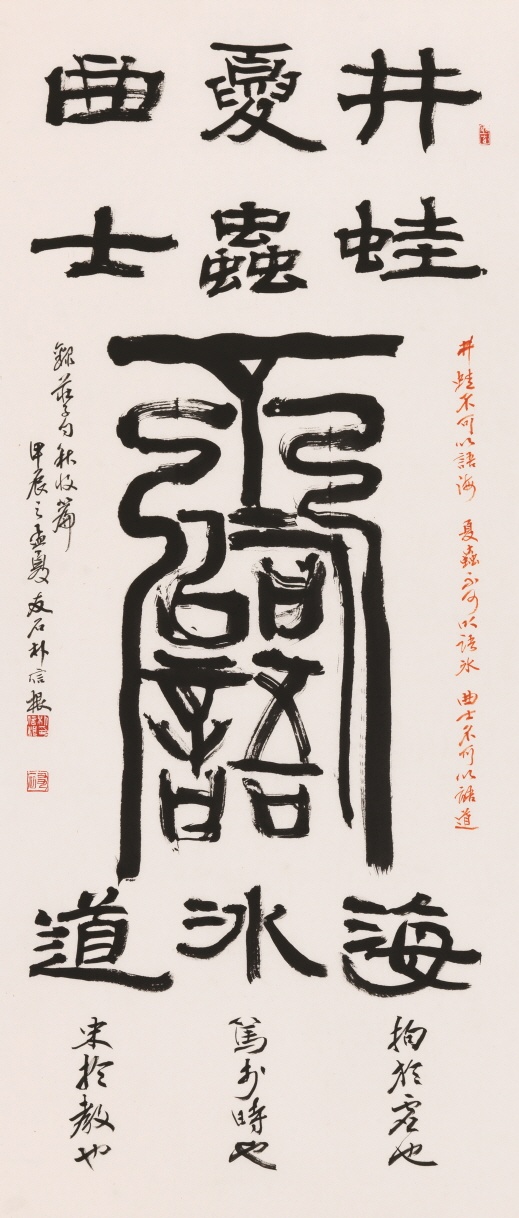 井蛙不可以語海 夏蟲不可以語冰 曲士不可以語道
井蛙
夏蟲
曲士
不可以語
海
冰
道
拘於虛也
篤於時也
束於教也
錄莊子句秋 篇
甲辰之孟夏 友石朴信根